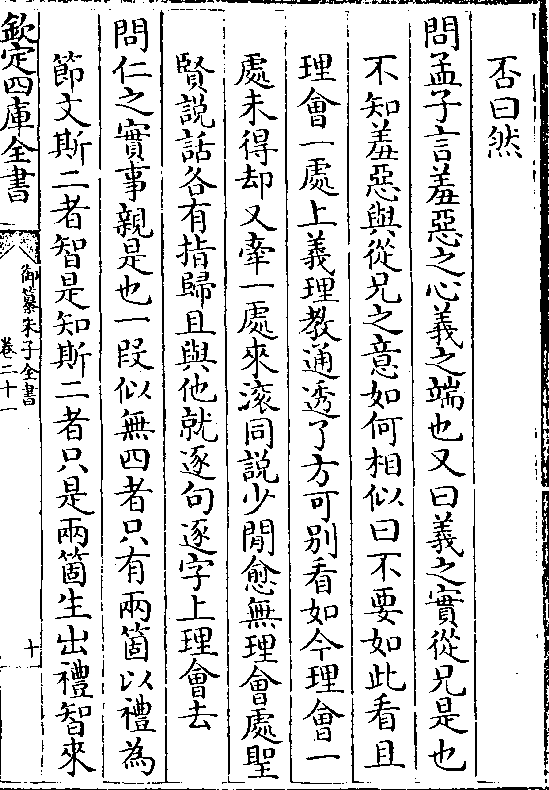 否曰然
問孟子言羞惡之心義之端也又曰義之實從兄是也
不知羞惡與從兄之意如何相似曰不要如此看且
理會一處上義理教通透了方可别看如今理會一
處未得却又牽一處來滚同說少閒愈無理會處聖
賢說話各有指歸且與他就逐句逐字上理會去
問仁之實事親是也一段似無四者只有兩箇以禮為
節文斯二者智是知斯二者只是兩箇生出禮智來
欽定四庫全書
御纂朱子全書
卷二十一
十